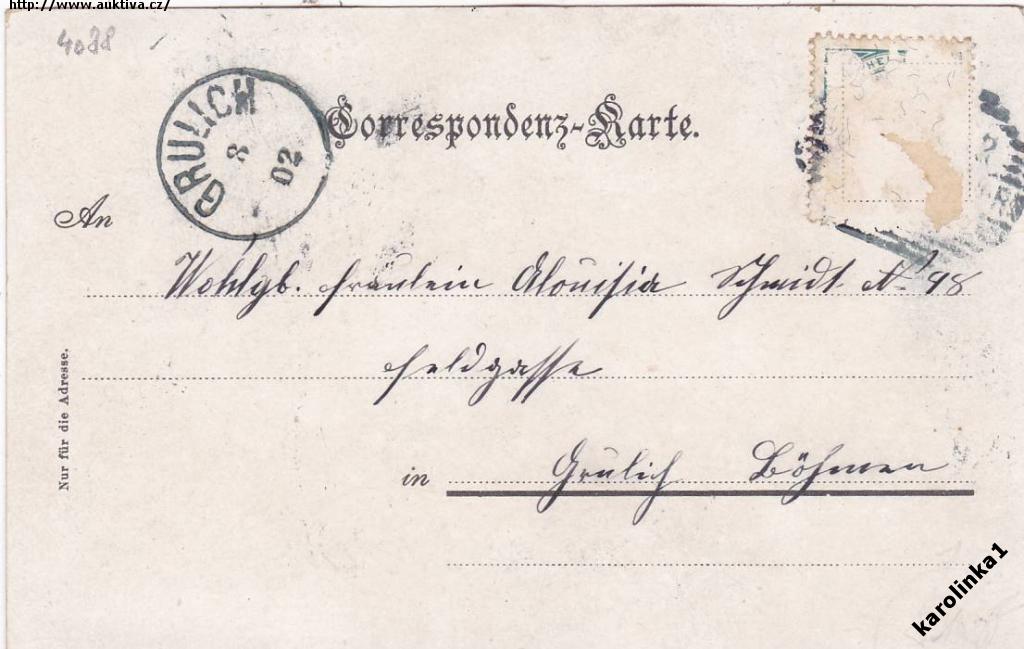 http://www.auktiva.cz/
4088
GRULICH
8
02
Correspondenz-Karte.
An
Wohlgb. Fräulein Alouisia Schmidt No 98
Feldgasse
in Grulich Böhmen
Nur für die Adresse.
karolinka1